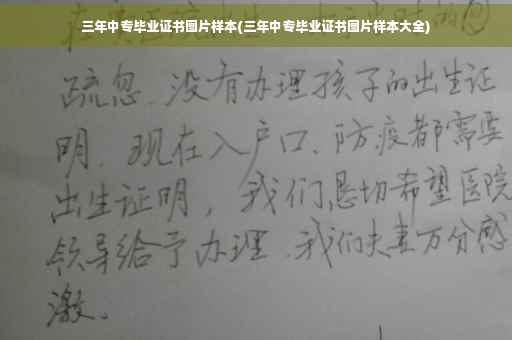 三年中专毕业证书图片样本(三年中专毕业证书图片样本大全)
疏忽、没有办理孩子的出生证
明、现在入户口、防疫都需要
出生证明，我们恳切希望医院
领导给予办理、我们夫妻万分感
激。